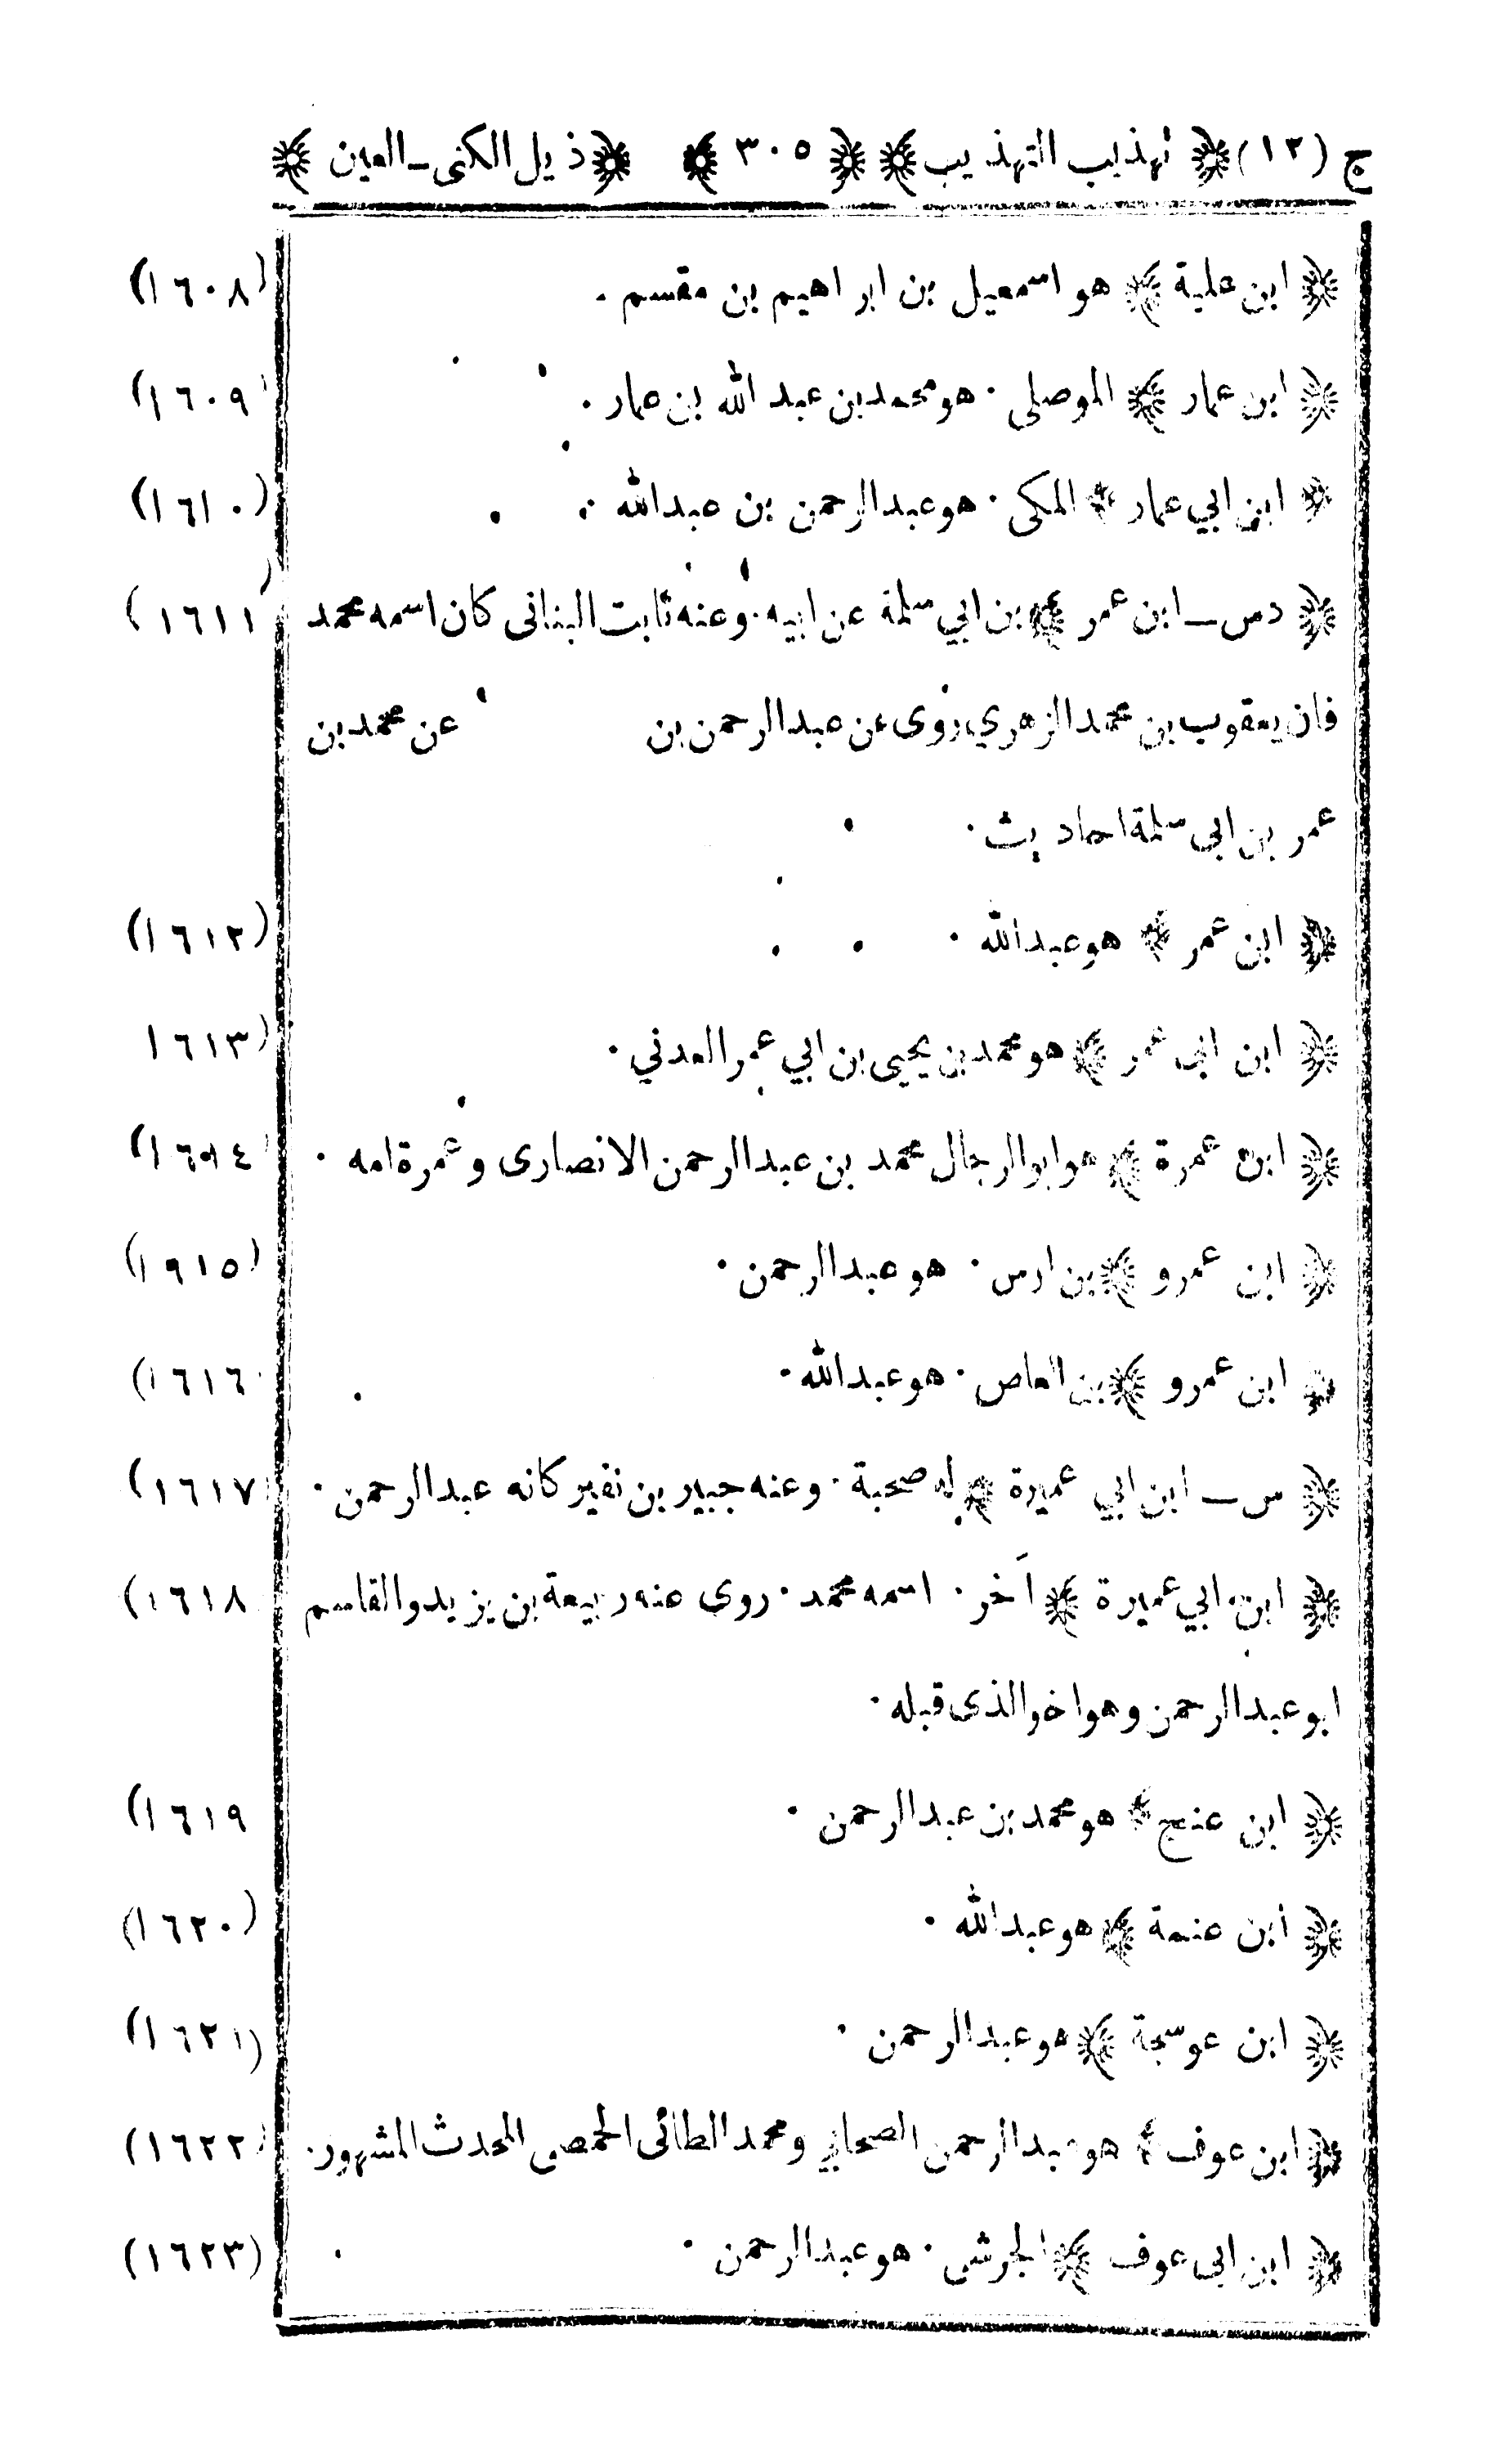 ج (١٢) ﴿ تهذيب التهذيب ﴾ ﴿ ٣٠٥ ﴾ ﴿ ذيل الكنى ـ العين ﴾
﴿ ابن علية ﴾ هو اسمعيل بن ابراهيم بن مقسم . (١٦٠٨)
﴿ ابن عمار ﴾ الموصلى . هو محمد بن عبد الله بن عمار . (١٦٠٩)
﴿ ابن ابي عمار ﴾ المكى . هو عبد الرحمن بن عبد الله . (١٦١٠)
﴿ دس ـ ابن عمر ﴾ بن ابي سلمة عن ابيه . وعنه ثابت البنانى كان اسمه محمد (١٦١١)
فان يعقوب بن محمد الزهري روى عن عبد الرحمن بن عن محمد بن
عمر بن ابى سلمة احاديث .
﴿ ابن عمر ﴾ هو عبد الله . (١٦١٢)
﴿ ابن ابى عمر ﴾ هو محمد بن يحيى بن ابي عمر العدني . (١٦١٣
﴿ ابن عمرة ﴾ هو ابو الرجال محمد بن عبد الرحمن الانصارى وعمرة امه . (١٦١٤)
﴿ ابن عمرو ﴾ بن اوس . هو عبد الرحمن . (١٩١٥)
﴿ ابن عمرو ﴾ بن العاص . هو عبد الله . (١٦١٦)
﴿ س ـ ابن ابي عميرة ﴾ له صحبة . وعنه جبير بن نفير كانه عبد الرحمن . (١٦١٧)
﴿ ابن ابي عميرة ﴾ آخر . اسمه محمد . روى عنه ربيعة بن يزيد والقاسم (١٦١٨)
ابو عبد الرحمن وهو اخو الذى قبله .
﴿ ابن عنج ﴾ هو محمد بن عبد الرحمن . (١٦١٩)
﴿ ابن عنمة ﴾ هو عبد الله . (١٦٢٠)
﴿ ابن عوسجة ﴾ هو عبد الرحمن . (١٦٢١)
﴿ ابن عوف ﴾ هو عبد الرحمن الصحابي ومحمد الطائى الحمصى المحدث المشهور . (١٦٢٢)
﴿ ابن ابى عوف ﴾ الجرشى . هو عبد الرحمن . (١٦٢٣)